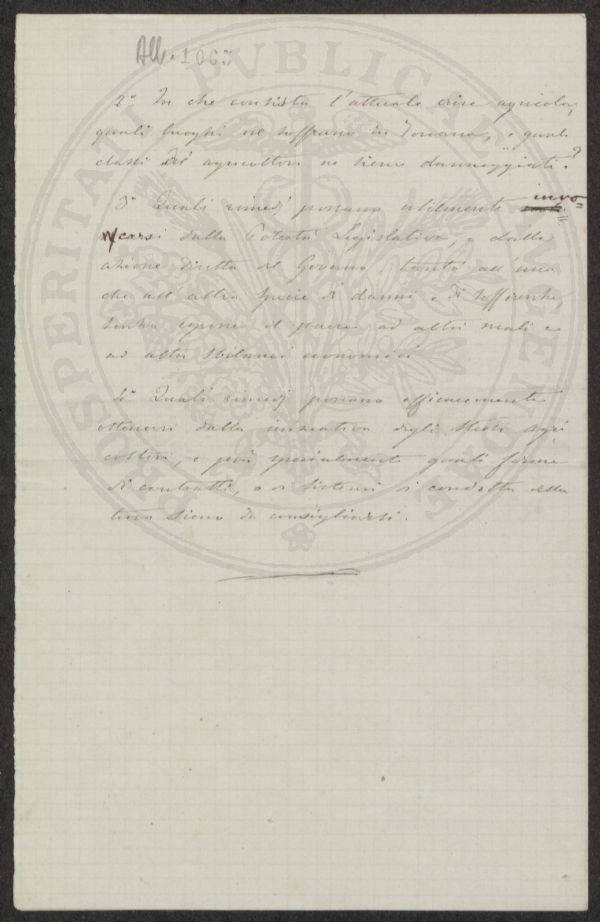 All. 1063
2° In che consista l'attuale crisi agricola,
quali luoghi ne soffrano in Toscana, e quali
classi di agricoltori ne sieno danneggiati?
3° Quali rimedj possano utilmente invo=
carsi dalla Potestà Legislativa, e dalla
azione diretta del Governo, tanto all'una
che all'altra specie di danni e di sofferenze
senza esporre il paese ad altri mali e
ad altri sbilanci economici
4° Quali rimedj possano efficacemente
ottenersi dalla iniziativa degli stessi agri
coltori, e più specialmente quali forme
di contratti, o di sistemi di condotta della
terra sieno da consigliarsi.
PROSPERITATI PVBLICAE AVGENDAE